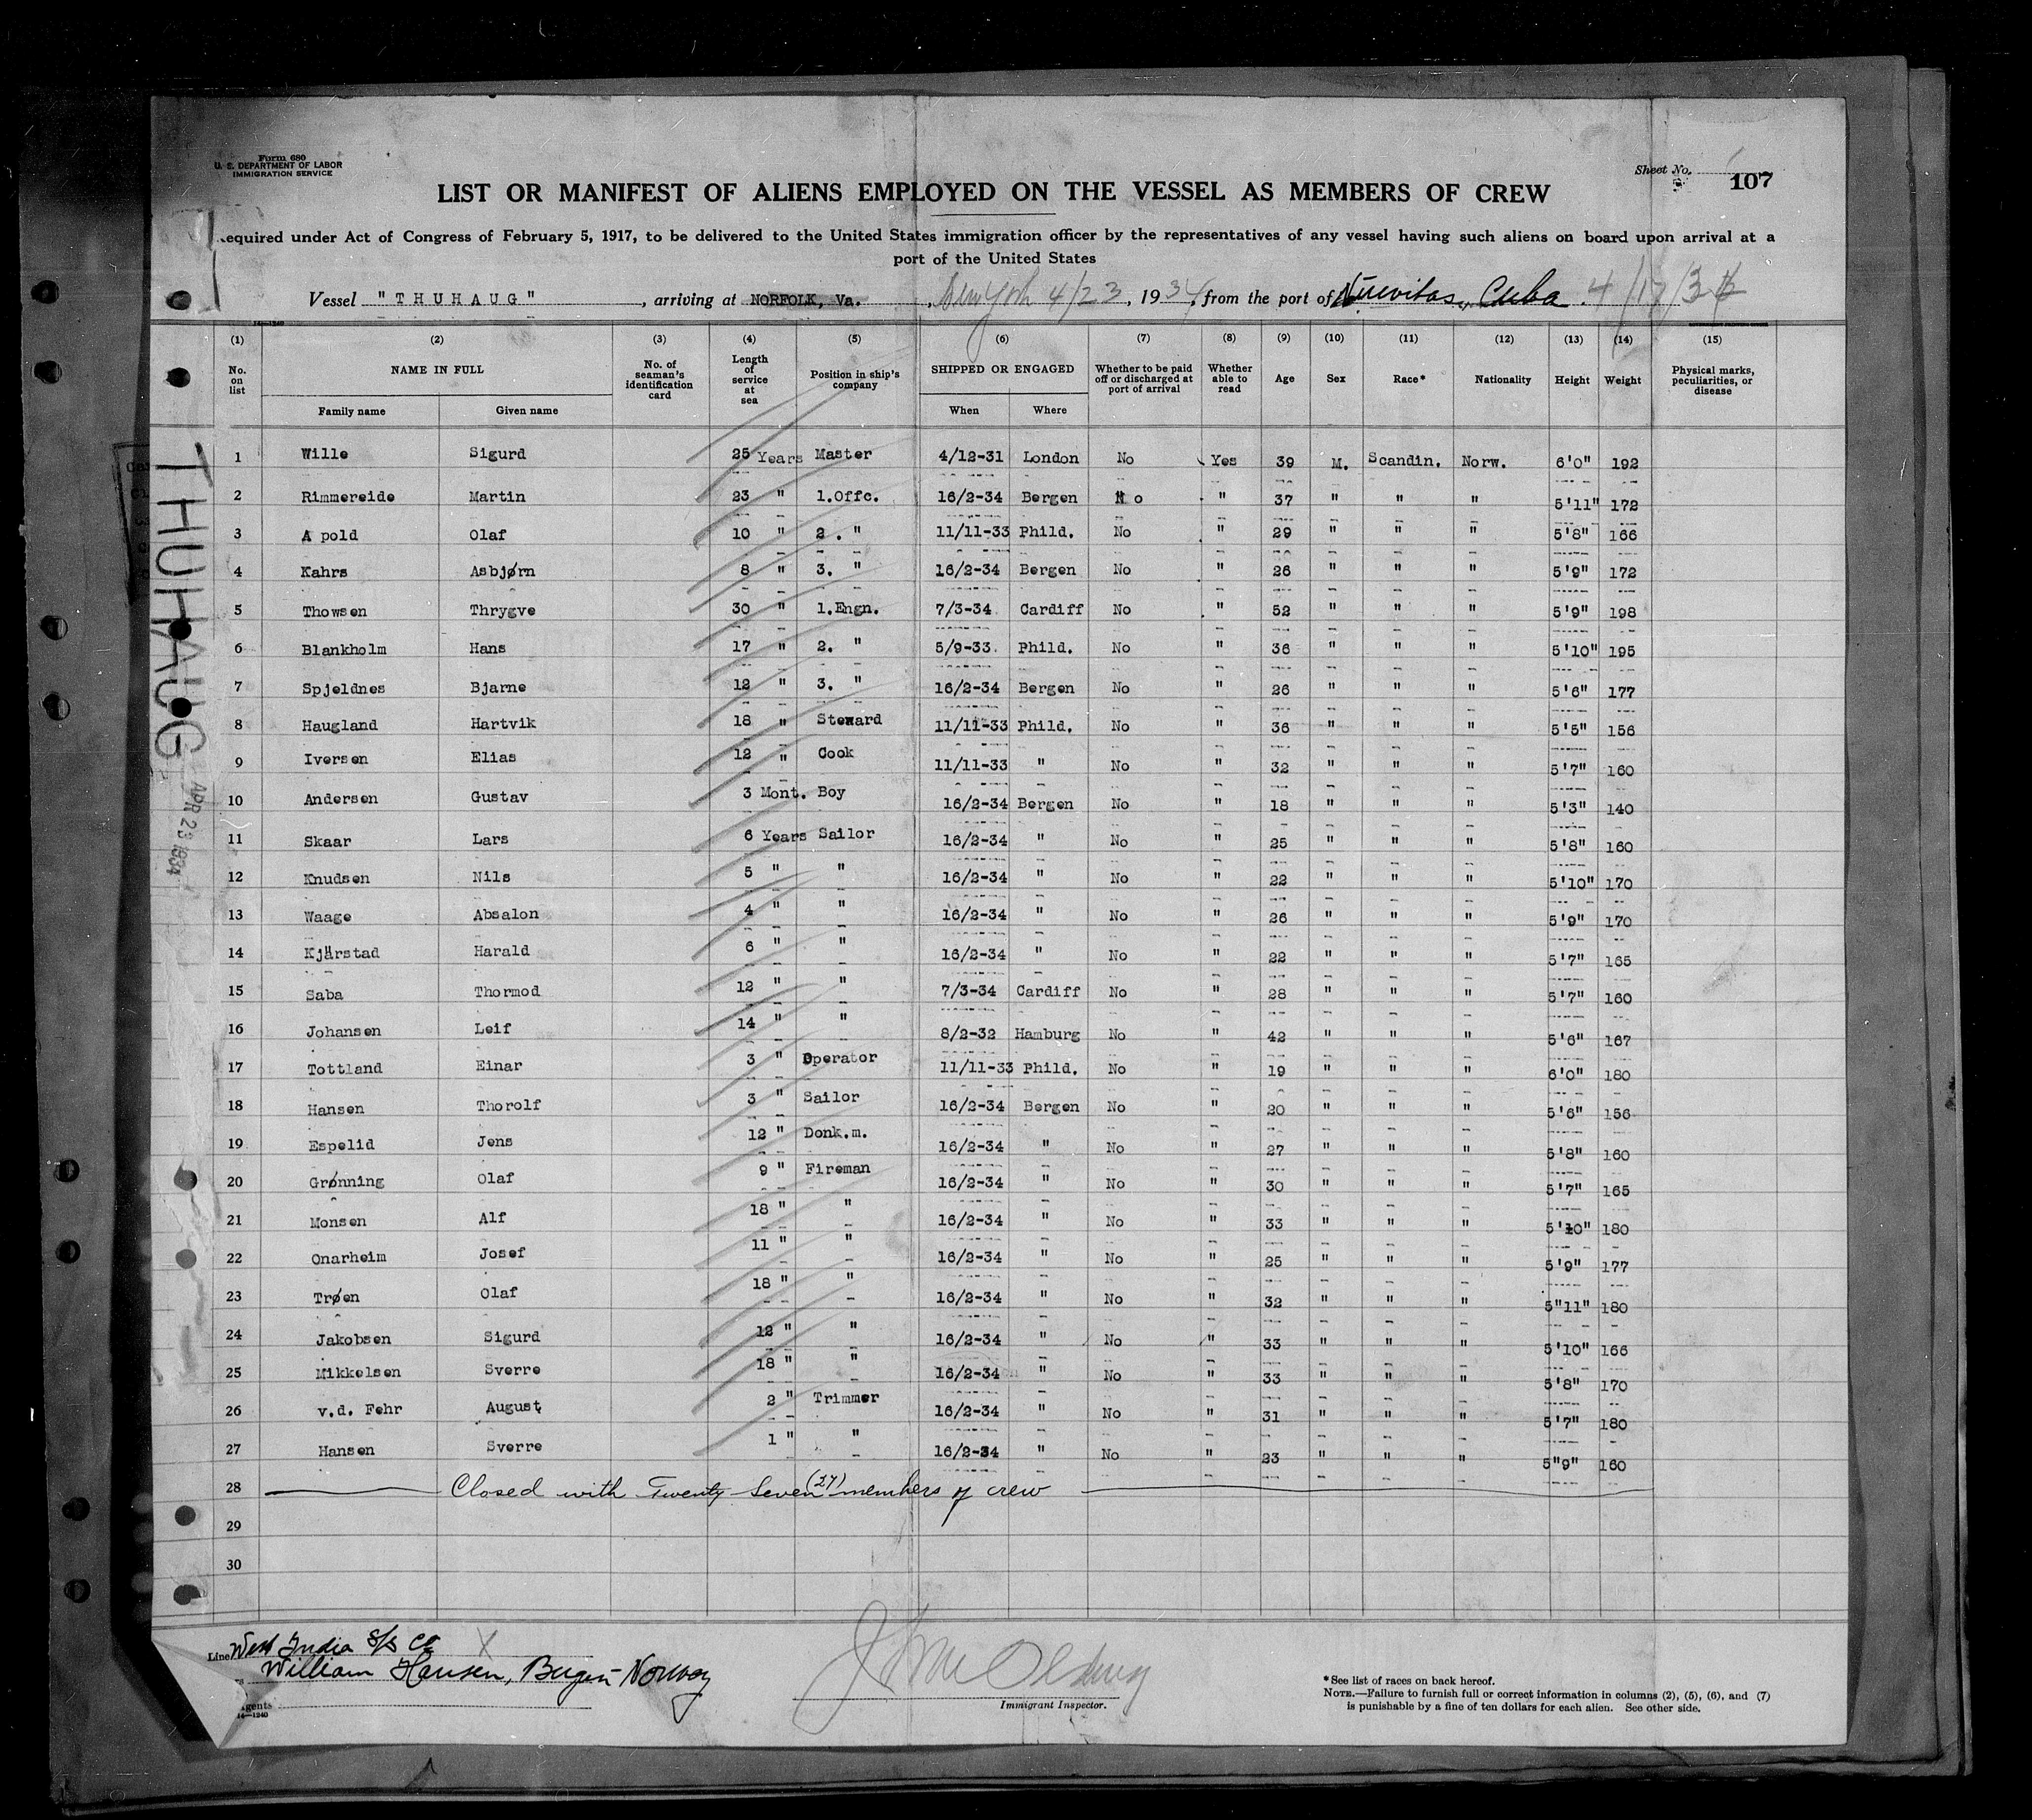 Form 680
U. S. DEPARTMENT OF LABOR
IMMIGRATION SERVICE
Sheet No.
107
LIST OR MANIFEST OF ALIENS EMPLOYED ON THE VESSEL AS MEMBERS OF CREW
equired under Act of Congress of February 5, 1917, to be delivered to the United States immigration officer by the representatives of any vessel having such aliens on board upon arrival at a
port of the United States
Vessel "THUHAUG", arriving at NORFOLK, Va., New York 4/23, 1934, from the port of Nuevitas, Cuba. 4/17/34
14—1240
(1) (2) (3) (4) (5) (6) (7) (8) (9) (10) (11) (12) (13) (14) (15)
No. on list NAME IN FULL Family name Given name No. of seaman's identification card Length of service at sea Position in ship's company SHIPPED OR ENGAGED When Where Whether to be paid off or discharged at port of arrival Whether able to read Age Sex Race* Nationality Height Weight Physical marks, peculiarities, or disease
1 Wille Sigurd 25 Years Master 4/12-31 London No Yes 39 M. Scandin. Norw. 6'0" 192
2 Rimmereide Martin 23 " 1.Offc. 16/2-34 Bergen No " 37 " " " 5'11" 172
3 A pold Olaf 10 " 2. " 11/11-33 Phild. No " 29 " " " 5'8" 166
4 Kahrs Asbjørn 8 " 3. " 16/2-34 Bergen No " 26 " " " 5'9" 172
5 Thowsen Thrygve 30 " 1.Engn. 7/3-34 Cardiff No " 52 " " " 5'9" 198
6 Blankholm Hans 17 " 2. " 5/9-33. Phild. No " 36 " " " 5'10" 195
7 Spjeldnes Bjarne 12 " 3. " 16/2-34 Bergen No " 26 " " " 5'6" 177
8 Haugland Hartvik 18 " Steward 11/11-33 Phild. No " 36 " " " 5'5" 156
9 Iversen Elias 12 " Cook 11/11-33 " No " 32 " " " 5'7" 160
10 Andersen Gustav 3 Mont. Boy 16/2-34 Bergen No " 18 " " " 5'3" 140
11 Skaar Lars 6 Years Sailor 16/2-34 " No " 25 " " " 5'8" 160
12 Knudsen Nils 5 " " 16/2-34 " No " 22 " " " 5'10" 170
13 Waage Absalon 4 " " 16/2-34 " No " 26 " " " 5'9" 170
14 Kjärstad Harald 6 " " 16/2-34 " No " 22 " " " 5'7" 165
15 Saba Thormod 12 " " 7/3-34 Cardiff No " 28 " " " 5'7" 160
16 Johansen Leif 14 " " 8/2-32 Hamburg No " 42 " " " 5'6" 167
17 Tottland Einar 3 " Operator 11/11-33 Phild. No " 19 " " " 6'0" 180
18 Hansen Thorolf 3 " Sailor 16/2-34 Bergen No " 20 " " " 5'6" 156
19 Espelid Jens 12 " Donk.m. 16/2-34 " No " 27 " " " 5'8" 160
20 Grønning Olaf 9 " Fireman 16/2-34 " No " 30 " " " 5'7" 165
21 Monsen Alf 18 " " 16/2-34 " No " 33 " " " 5'10" 180
22 Onarheim Josef 11 " " 16/2-34 " No " 25 " " " 5'9" 177
23 Trøen Olaf 18 " " 16/2-34 " No " 32 " " " 5"11" 180
24 Jakobsen Sigurd 12 " " 16/2-34 " No " 33 " " " 5'10" 166
25 Mikkelsen Sverre 18 " " 16/2-34 " No " 33 " " " 5'8" 170
26 v.d. Fehr August 2 " Trimmer 16/2-34 " No " 31 " " " 5'7" 180
27 Hansen Sverre 1 " " 16/2-34 " No " 23 " " " 5"9" 160
28 Closed with Twenty Seven (27) members of crew
29
30
THUHAUG
APR 23 1934
Line West India S/S Co X
William Hansen, Bergen Norway
gents
14—1240
Immigrant Inspector.
*See list of races on back hereof.
NOTE.—Failure to furnish full or correct information in columns (2), (5), (6), and (7)
is punishable by a fine of ten dollars for each alien. See other side.